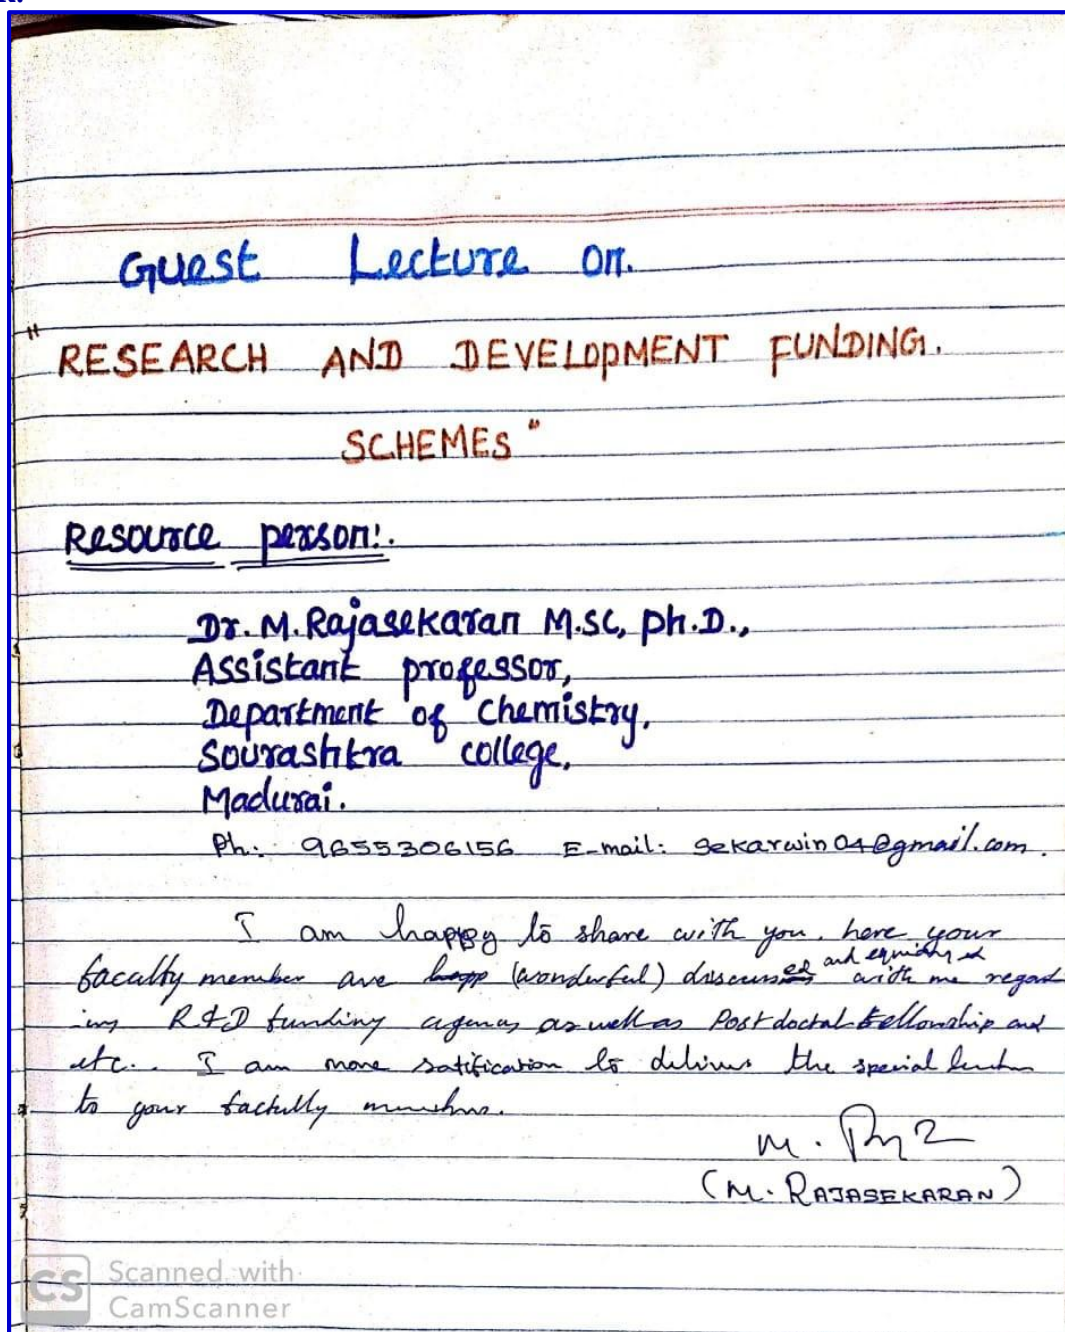 Guest Lecture on.
"RESEARCH AND DEVELOPMENT FUNDING.
SCHEMES"
Resource person:.
Dr. M. Rajasekaran M.sc, ph.D.,
Assistant professor,
Department of chemistry,
Sourashtra college,
Madurai.
Ph: 9655306156 E-mail: sekarwin04@gmail.com.
I am happy to share with you, here your
faculty member are (wonderful) discussed and with me regard
-ing R&D funding as well as Post doctal Fellowship and
etc.. I am more satification to the special
to your
M.
(M. RAJASEKARAN)
CS Scanned with
CamScanner